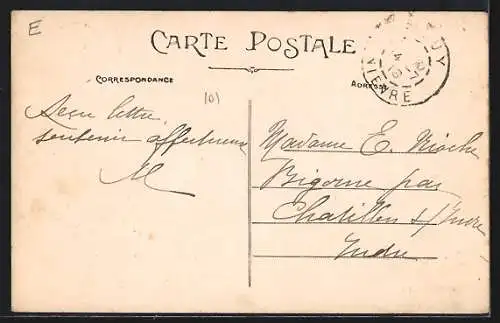 E
CARTE POSTALE
CORRESPONDANCE
ADRESSE
101
NIEVRE
Reçu lettre,
souvenir affectueux
M
Madame E. Mioche
Bigorne par
Chatillon s/ Indre
Indre